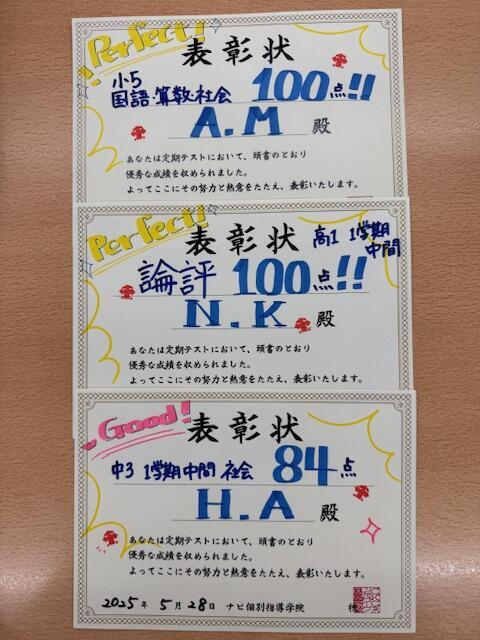 Perfect!
表彰状
小5
国語・算数・社会 100点!!
A.M 殿
あなたは定期テストにおいて、頭書のとおり
優秀な成績を収められました。
よってここにその努力と熱意をたたえ、表彰いたします。
Perfect!
表彰状
高1 1学期
中間
論評 100点!!
N.K 殿
あなたは定期テストにおいて、頭書のとおり
優秀な成績を収められました。
よってここにその努力と熱意をたたえ、表彰いたします。
Good!
表彰状
中3 1学期中間 社会 84点
H.A 殿
あなたは定期テストにおいて、頭書のとおり
優秀な成績を収められました。
よってここにその努力と熱意をたたえ、表彰いたします。
2025年 5月28日 ナビ個別指導学院